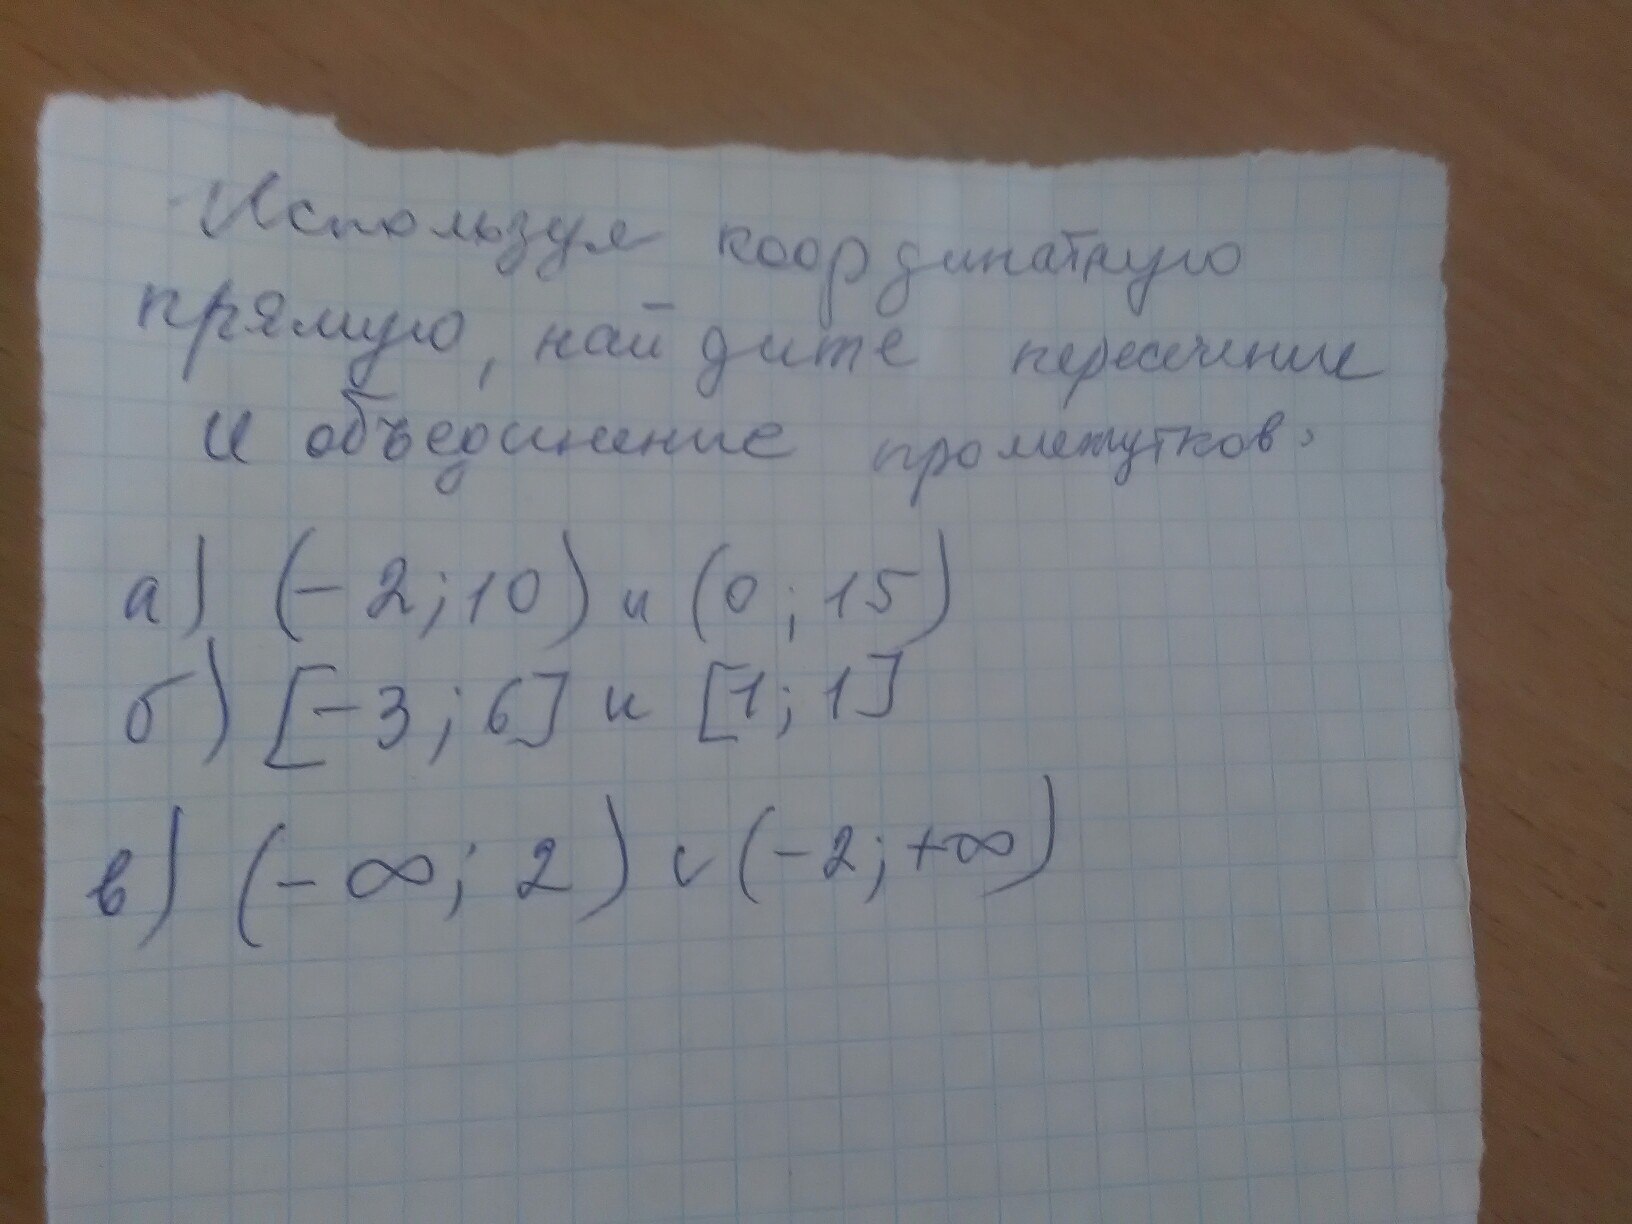 Используя координатную
прямую, найдите пересечение
и объединение промежутков.
а) (-2; 10) и (0; 15)
б) [-3; 6] и [1; 1]
в) (-∞; 2) и (-2; +∞)